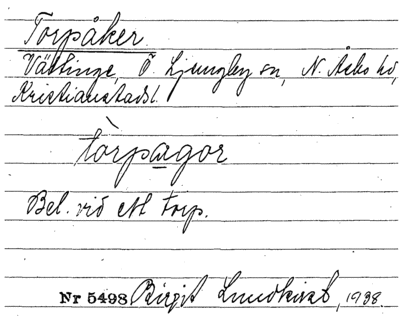 Torpåker.
Västinge, Ö. Ljungby sn, N. Åsbo hd,
Kristianstads l.
tòrpagor
Bel. vid ett torp.
Nr 5498 Birgit Lundkvist, 1938.